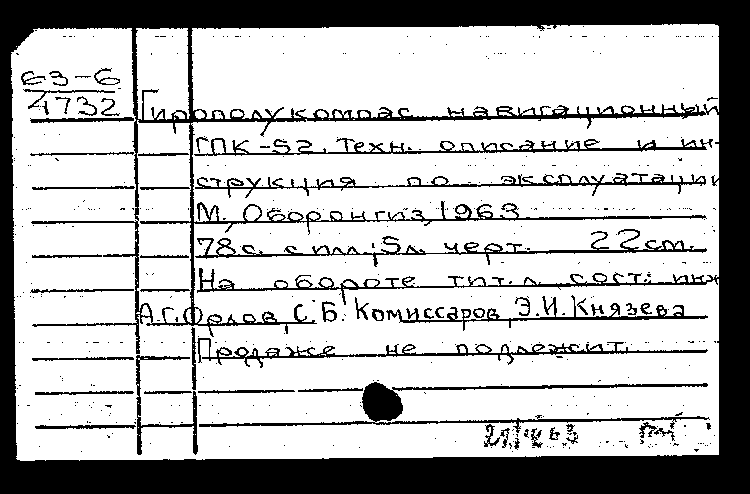 63-6
4732
Гирополукомпас навигационный
ГПК-52. Техн. описание и ин-
струкция по эксплуатации
М., Оборонгиз, 1963
78с. с илл.; 5л. черт. 22см.
На обороте тит. л. сост.: инж
А.Г. Орлов, С.Б. Комиссаров, Э.И. Князева
Продаже не подлежит.